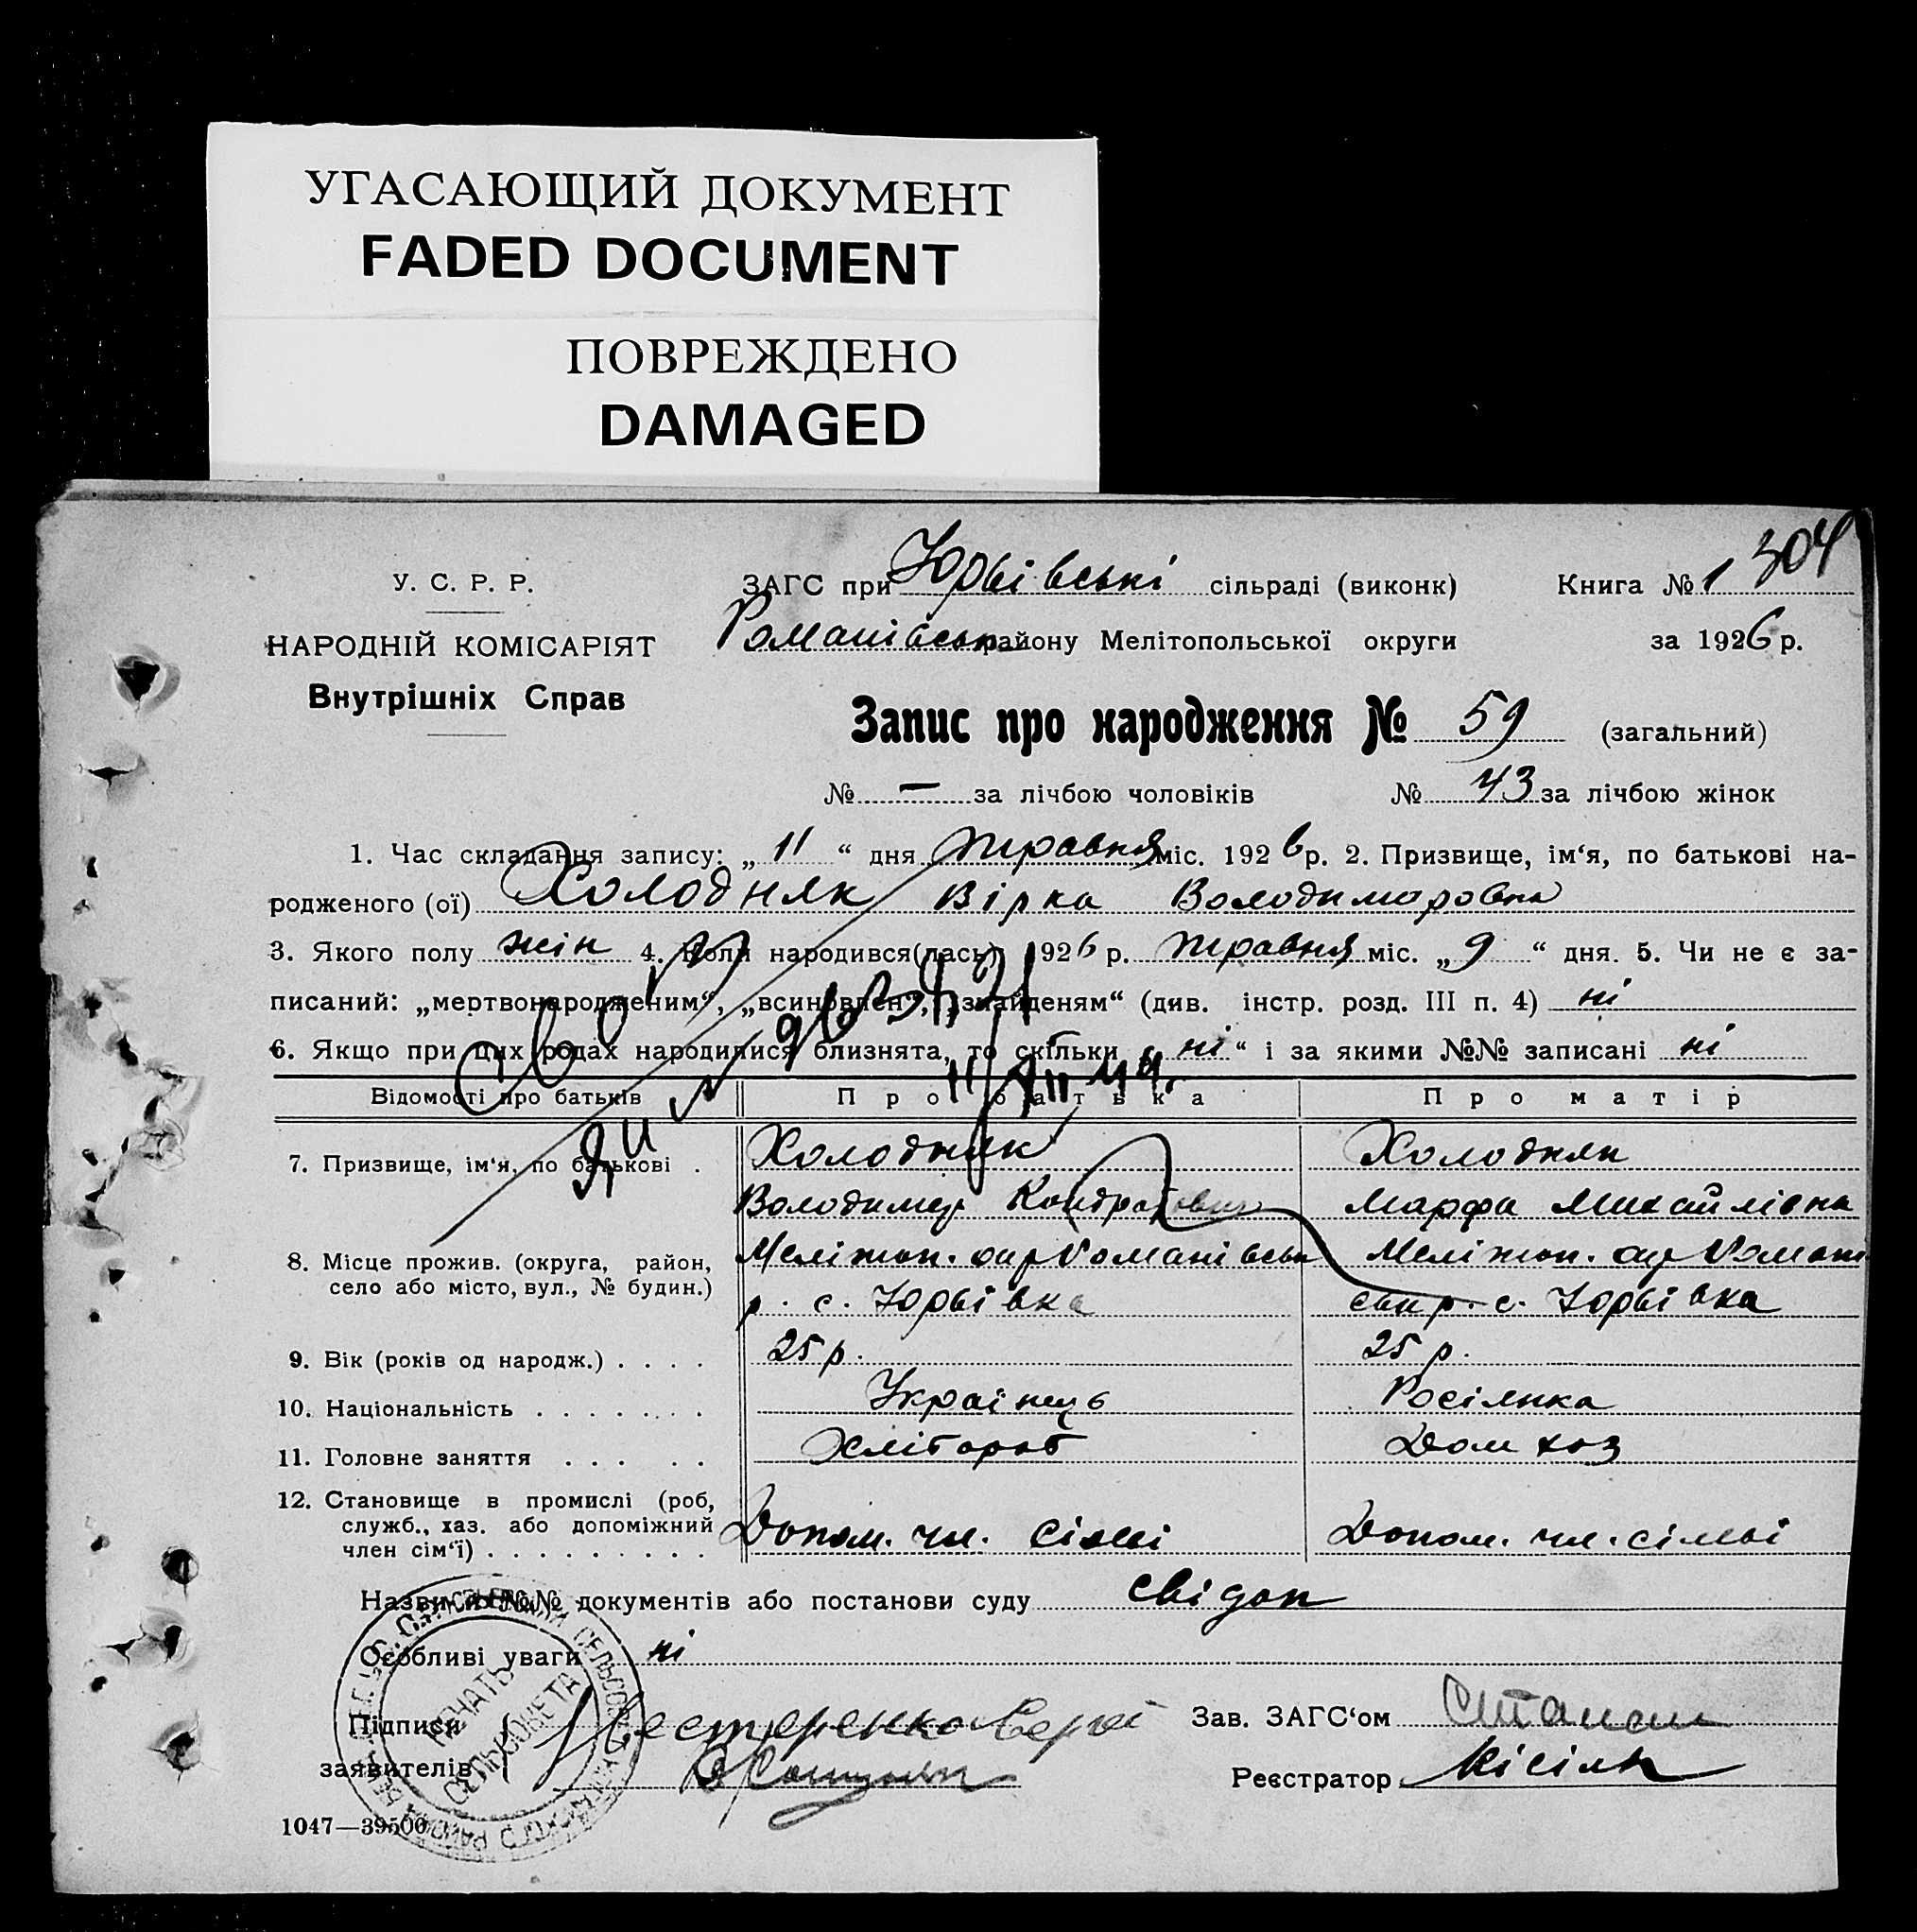 УГАСАЮЩИЙ ДОКУМЕНТ
FADED DOCUMENT
ПОВРЕЖДЕНО
DAMAGED
304
У. С. Р. Р.
НАРОДНІЙ КОМІСАРІЯТ
Внутрішніх Справ
ЗАГС при Юрьївські сільраді (виконк) Книга № 1
Романівськ району Мелітопольської округи за 1926 р.
Запис про народження № 59 (загальний)
№ — за лічбою чоловіків № 43 за лічбою жінок
1. Час складання запису: „ 11 “ дня травня міс. 1926 р. 2. Призвище, ім‘я, по батькові на-
родженого (ої) Холодняк Вірка Володимировна
3. Якого полу жін 4. Коли народився(лась) 1926 р. травня міс. „ 9 “ дня. 5. Чи не є за-
писаний: „мертвонародженим“, „всиновлен“, „знайденям“ (див. інстр. розд. III п. 4) ні
6. Якщо при цих родах народилися близнята, то скільки „ ні “ і за якими №№ записані ні
Відомості про батьків Про батька Про матір
7. Призвище, ім‘я, по батькові . Холодняк Холодняк
Володимир Марфа Михайлівна
8. Місце прожив. (округа, район, Мелітоп. окр Романівськ Мелітоп. окр Романі
село або місто, вул., № будин.) р. с. Юрьівка ськ р. с. Юрьівка
9. Вік (років од народж.) . . . . 25 р. 25 р.
10. Національність . . . . . . . Українець Росіянка
11. Головне заняття . . . . . Хлібороб Дом хоз
12. Становище в промислі (роб,
служб., хаз. або допоміжний Допом. чл. сімьі Допом. чл. сімьі
член сім‘ї) . . . . . . . . .
Назви і №№ документів або постанови суду свідоц
Особливі уваги ні
ПЕЧАТЬ
СЕЛЬСОВЕТА
Підписи Нестеренко Сергій Зав. ЗАГС‘ом
заявителів Реєстратор Кісіль
1047—39500